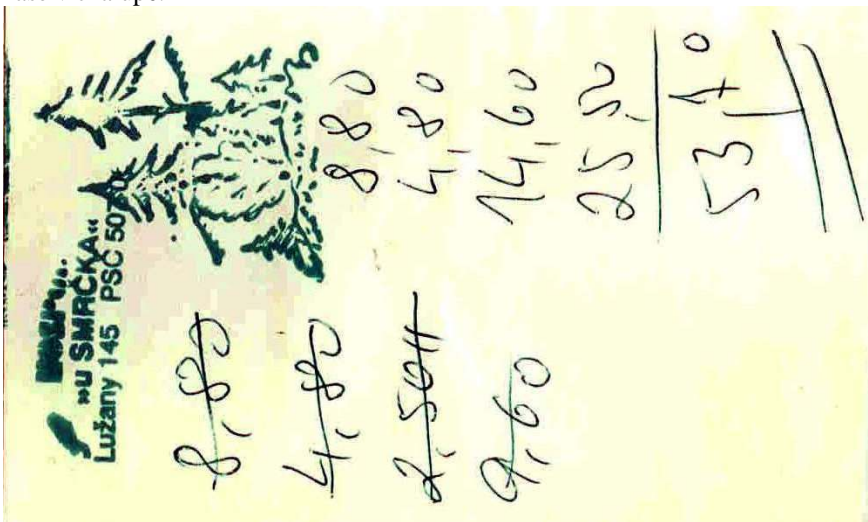 »U SMRČKA«
Lužany 145 PSČ
8,80
4,80
2,50 II
9,60
8,80
4,80
14,60
25,50
53,70